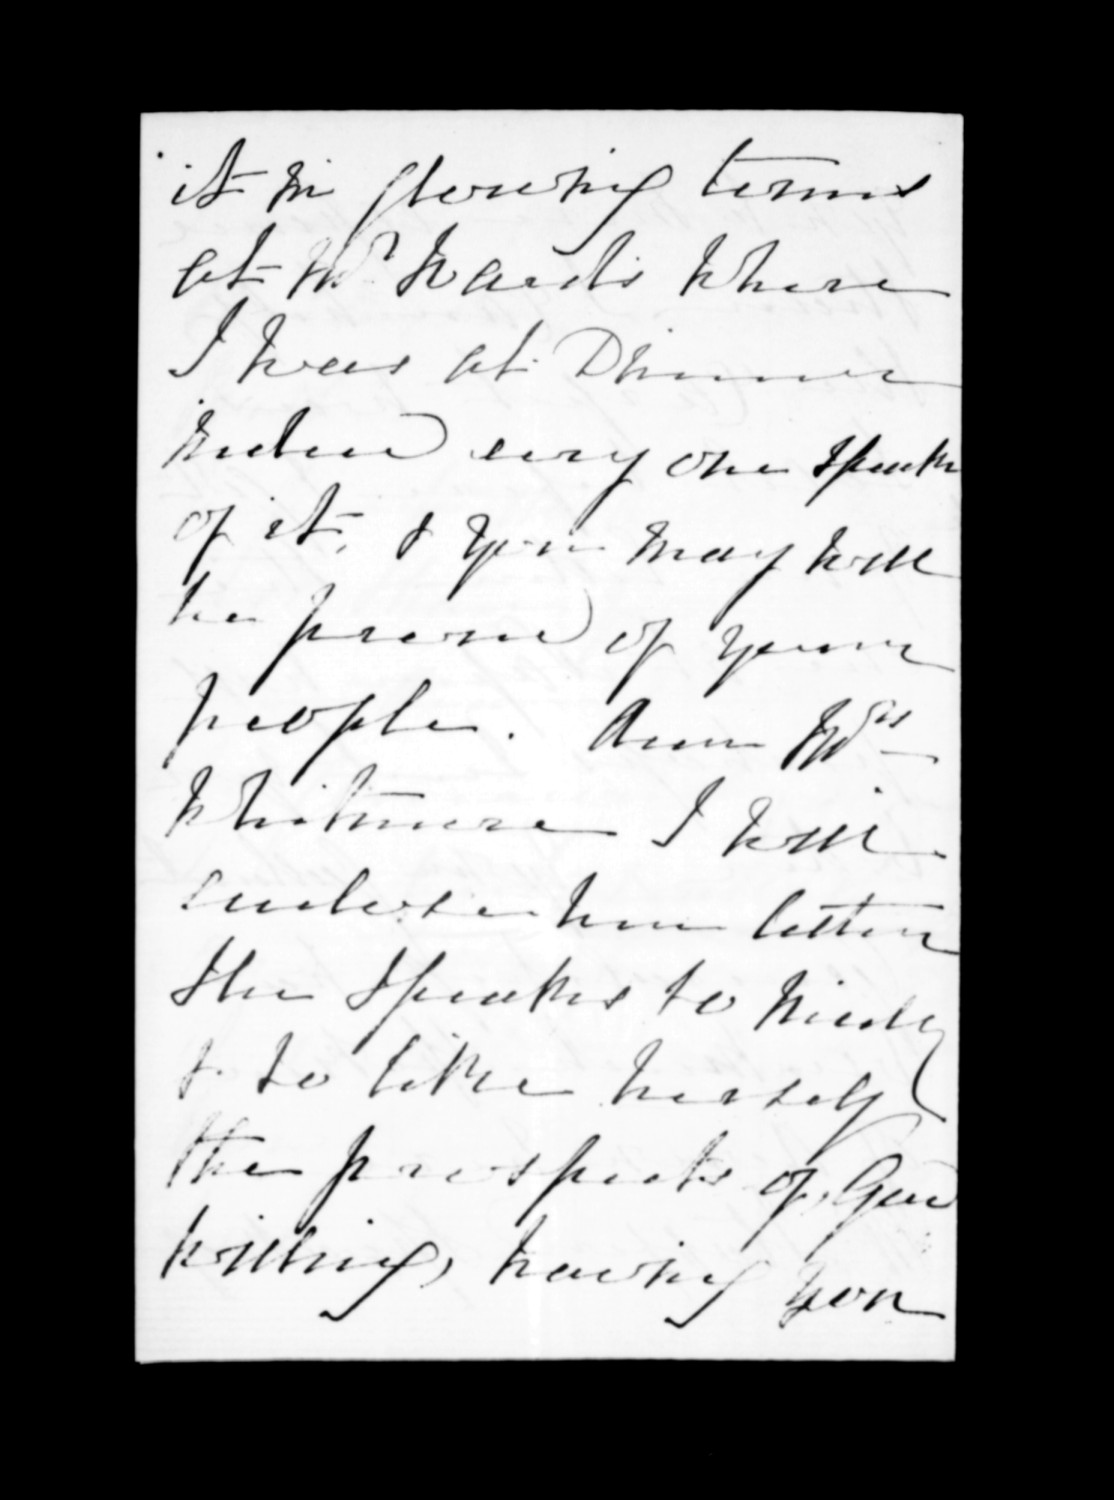 it in glowing terms
at Mr Ward's where
I was at Dinner
indeed every one speaks
of it, & you may well
be proud of your
people. Dear Mrs
Whitmore I will
enclose her letter
She speaks so kindly
& so like herself
the prospects of, God
willing, having you